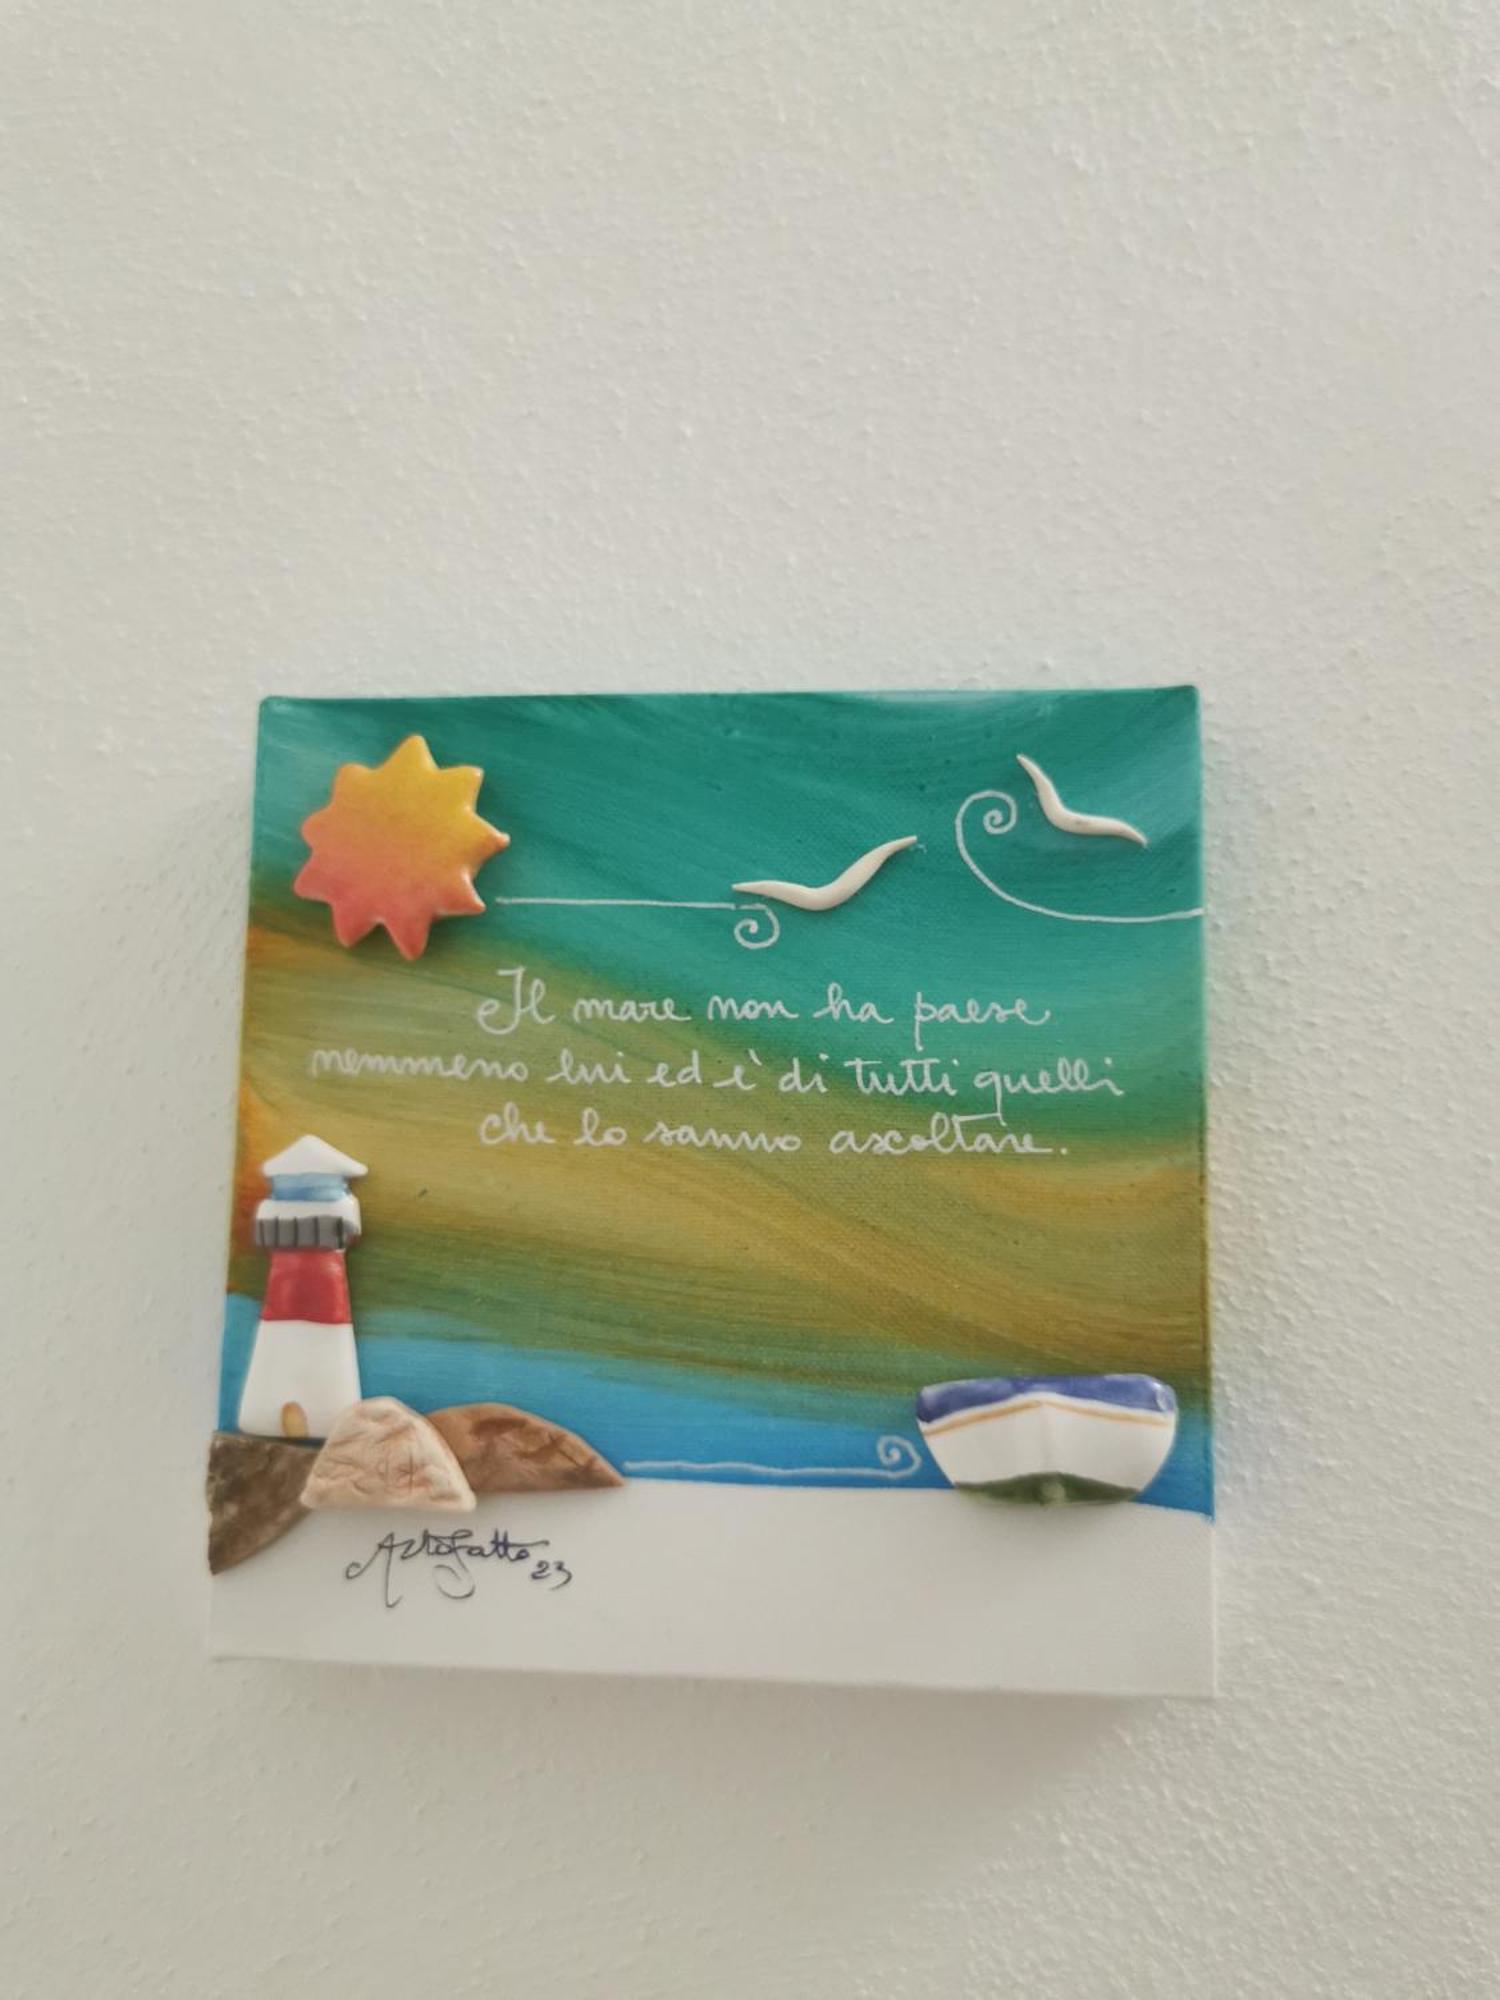 Il mare non ha paese
nemmeno lui ed è di tutti quelli
che lo sanno ascoltare.
Artofatto 23